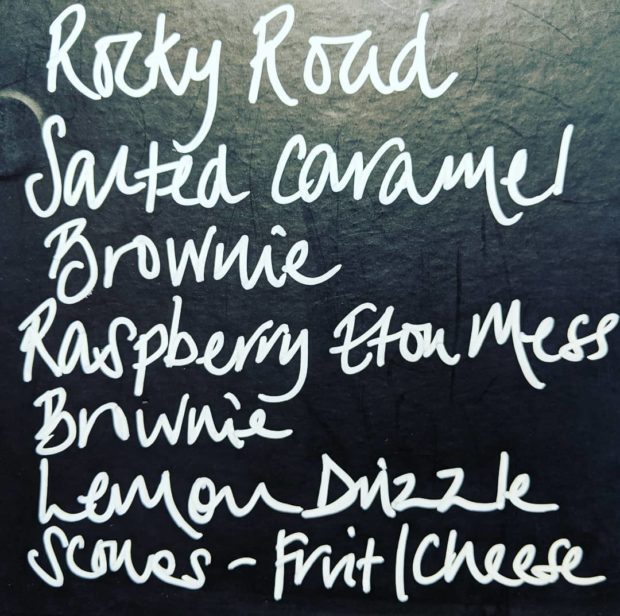 Rocky Road
Salted Caramel
Brownie
Raspberry Eton Mess
Brownie
Lemon Drizzle
Scones - Fruit/Cheese